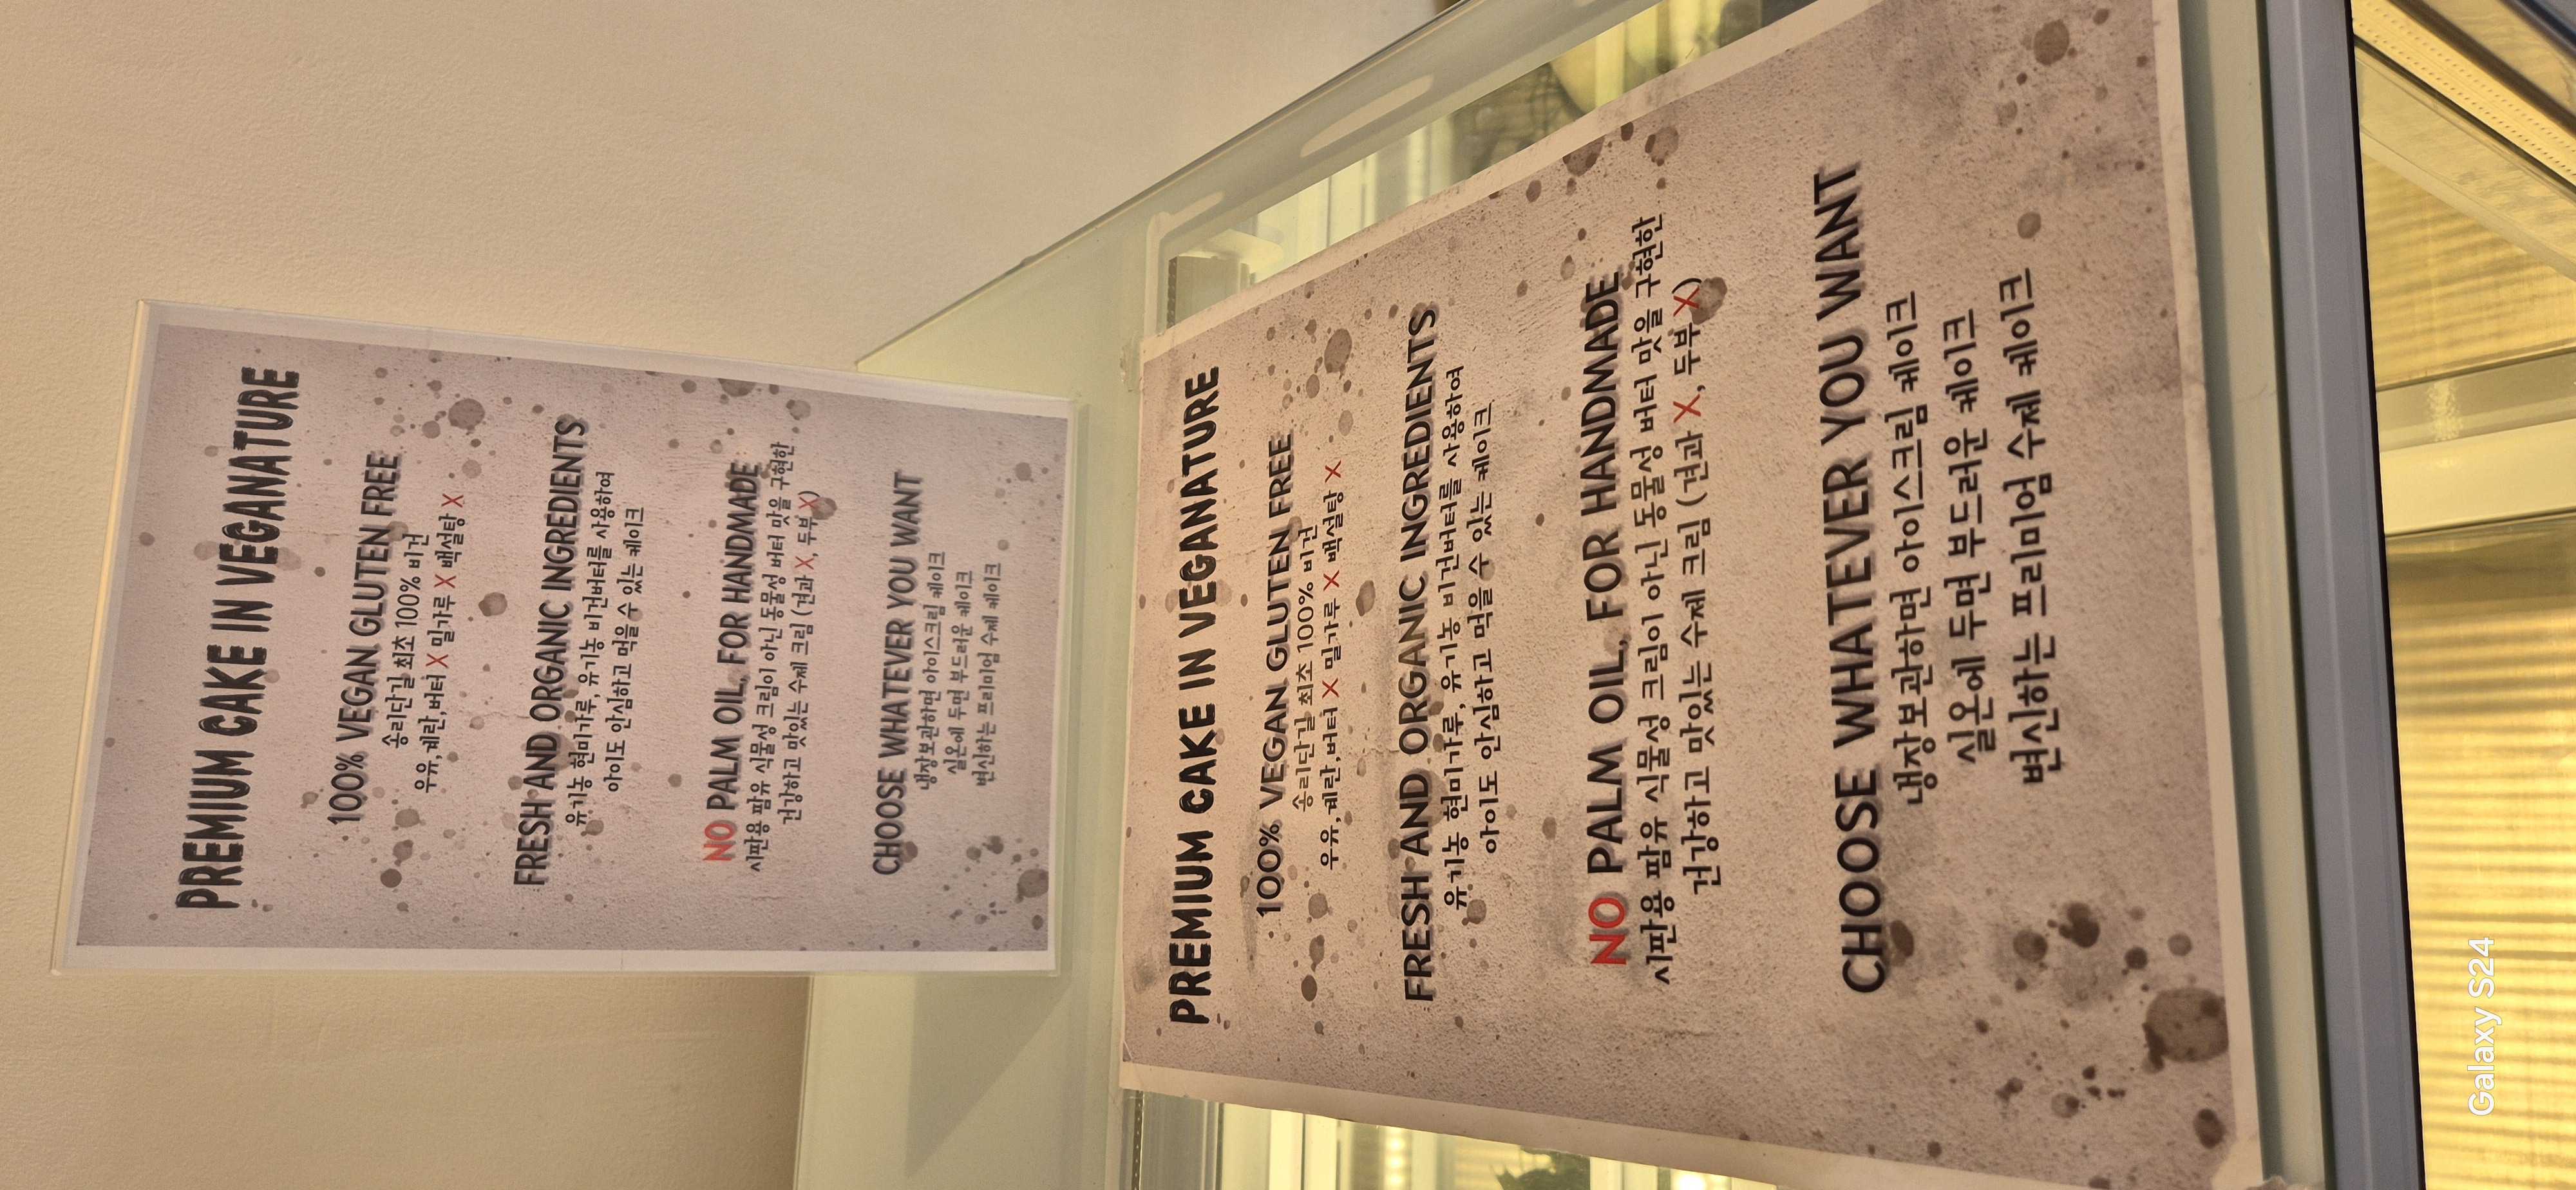 PREMIUM CAKE IN VEGANATURE
100% VEGAN GLUTEN FREE
송리단길 최초 100% 비건
우유,계란,버터 X 밀가루 X 백설탕 X
FRESH AND ORGANIC INGREDIENTS
유기농 현미가루, 유기농 비건버터를 사용하여
아이도 안심하고 먹을 수 있는 케이크
NO PALM OIL, FOR HANDMADE
시판용 팜유 식물성 크림이 아닌 동물성 버터 맛을 구현한
건강하고 맛있는 수제 크림 (견과 X, 두부 X)
CHOOSE WHATEVER YOU WANT
냉장보관하면 아이스크림 케이크
실온에 두면 부드러운 케이크
변신하는 프리미엄 수제 케이크
PREMIUM CAKE IN VEGANATURE
100% VEGAN GLUTEN FREE
송리단길 최초 100% 비건
우유,계란,버터 X 밀가루 X 백설탕 X
FRESH AND ORGANIC INGREDIENTS
유기농 현미가루, 유기농 비건버터를 사용하여
아이도 안심하고 먹을 수 있는 케이크
NO PALM OIL, FOR HANDMADE
시판용 팜유 식물성 크림이 아닌 동물성 버터 맛을 구현한
건강하고 맛있는 수제 크림 (견과 X, 두부 X)
CHOOSE WHATEVER YOU WANT
냉장보관하면 아이스크림 케이크
실온에 두면 부드러운 케이크
변신하는 프리미엄 수제 케이크
Galaxy S24